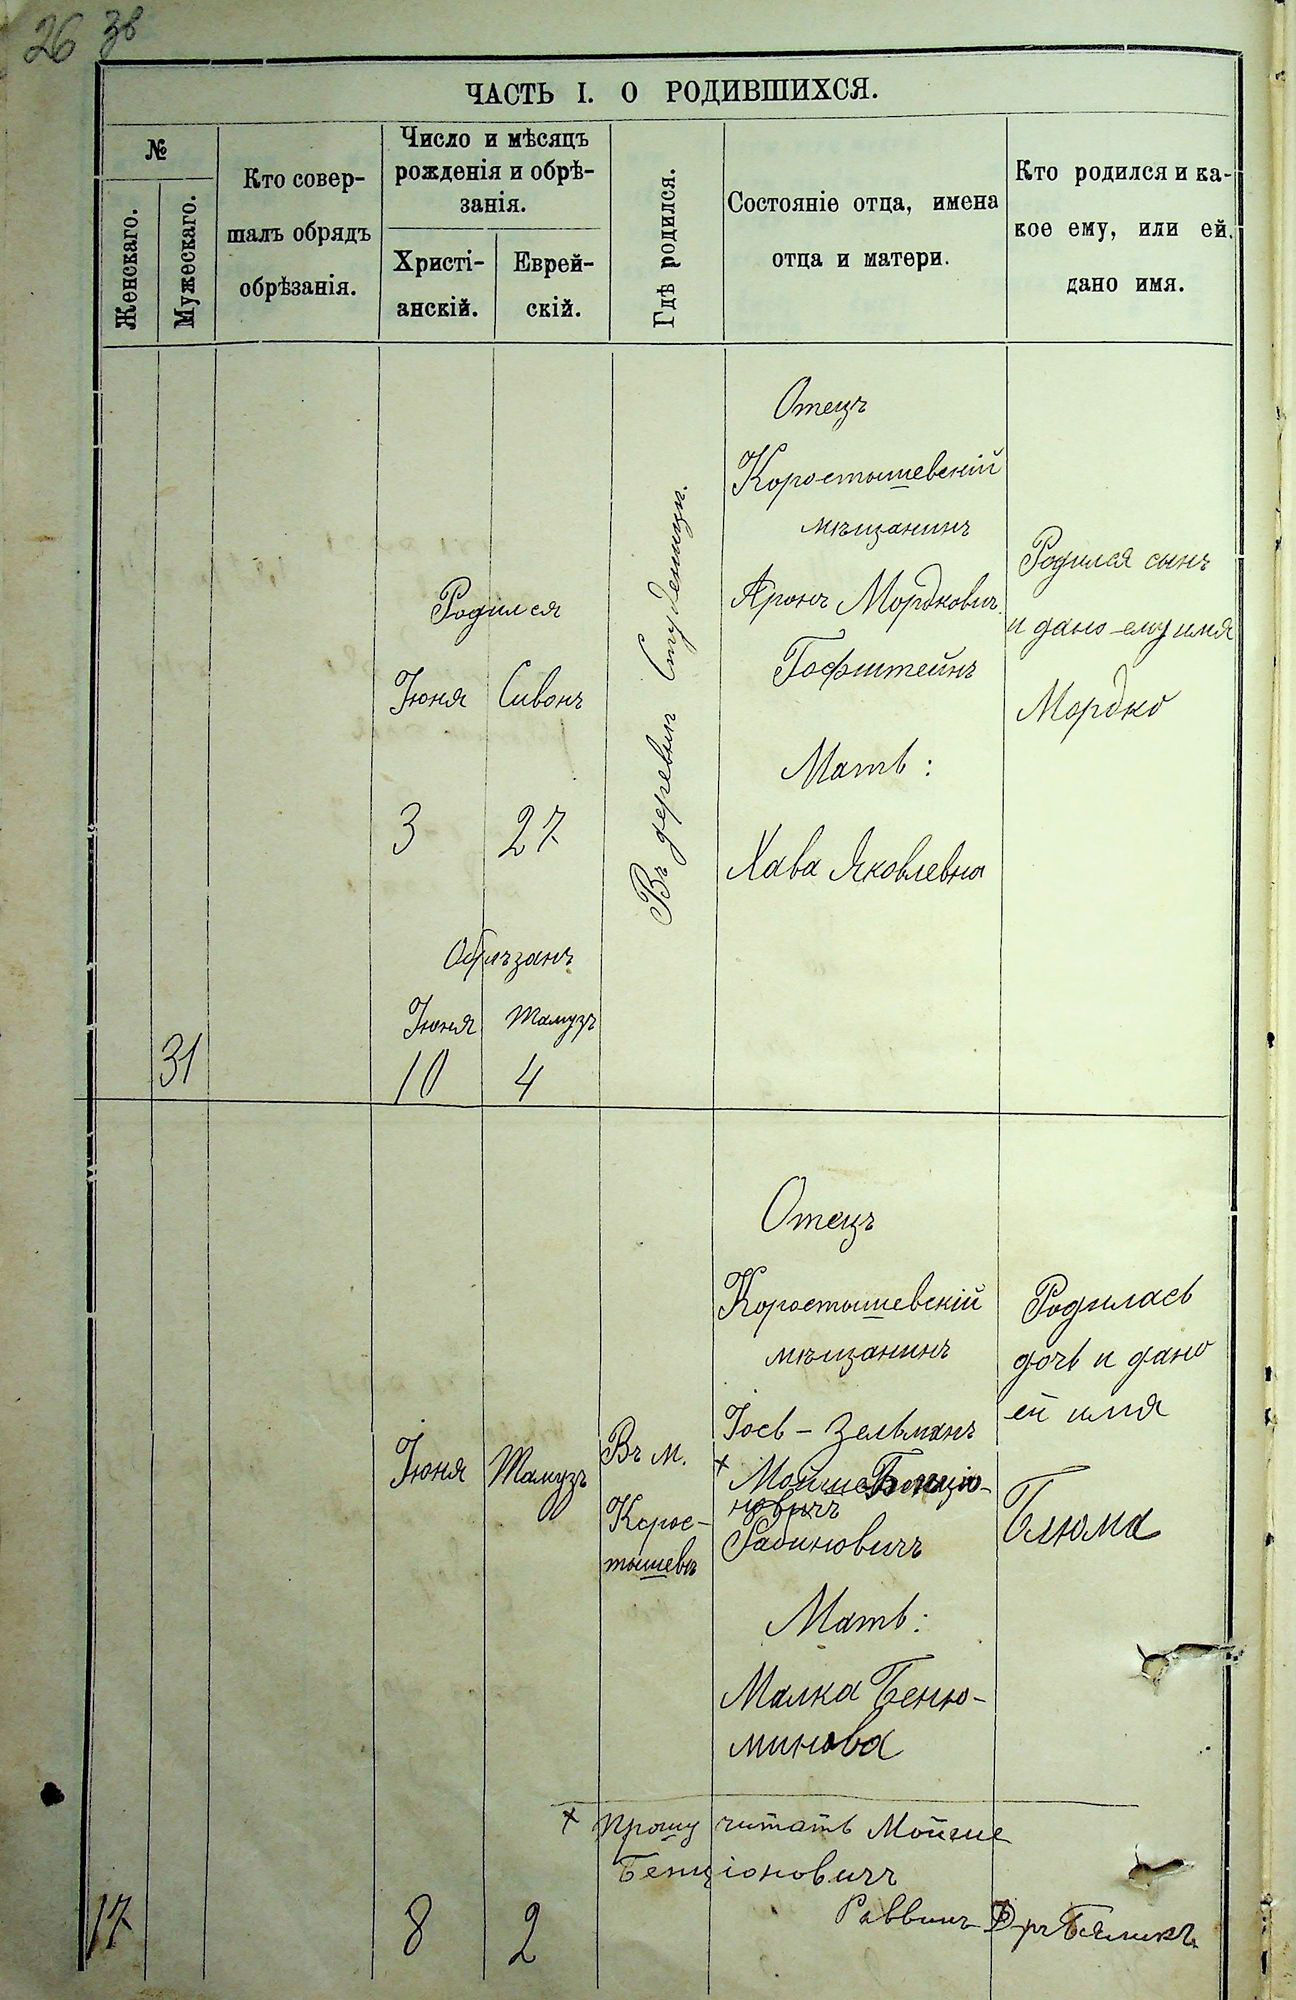 26 зв
ЧАСТЬ I. О РОДИВШИХСЯ.
№
Женскаго.
Мужескаго.
Кто совер-
шалъ обрядъ
обрѣзанія.
Число и мѣсяцъ
рожденія и обрѣ-
занія.
Христі-
анскій.
Еврей-
скій.
Гдѣ родился.
Состояніе отца, имена
отца и матери.
Кто родился и ка-
кое ему, или ей,
дано имя.
31
Родился
Іюня Сивонъ
3 27
Обрѣзанъ
Іюня Тамузъ
10 4
Въ деревнѣ Студеницы.
Отецъ
Коростышевскій
мѣщанинъ
Аронъ Мордковичъ
Гофштейнъ
Мать:
Хава Яковлевна
Родился сынъ
и дано ему имя
Мордко
17
Іюня Тамузъ
8 2
Въ м.
Корос-
тышевѣ
Отецъ
Коростышевскій
мѣщанинъ
Іось-Зельманъ
+ Мойше Бенціо-
новичъ
Рабиновичъ
Мать:
Малка Беню-
минова
Родилась
дочь и дано
ей имя
Блюма
+ прошу читать Мойше
Бенціоновичъ
Раввинъ Д-ръ Бяликъ